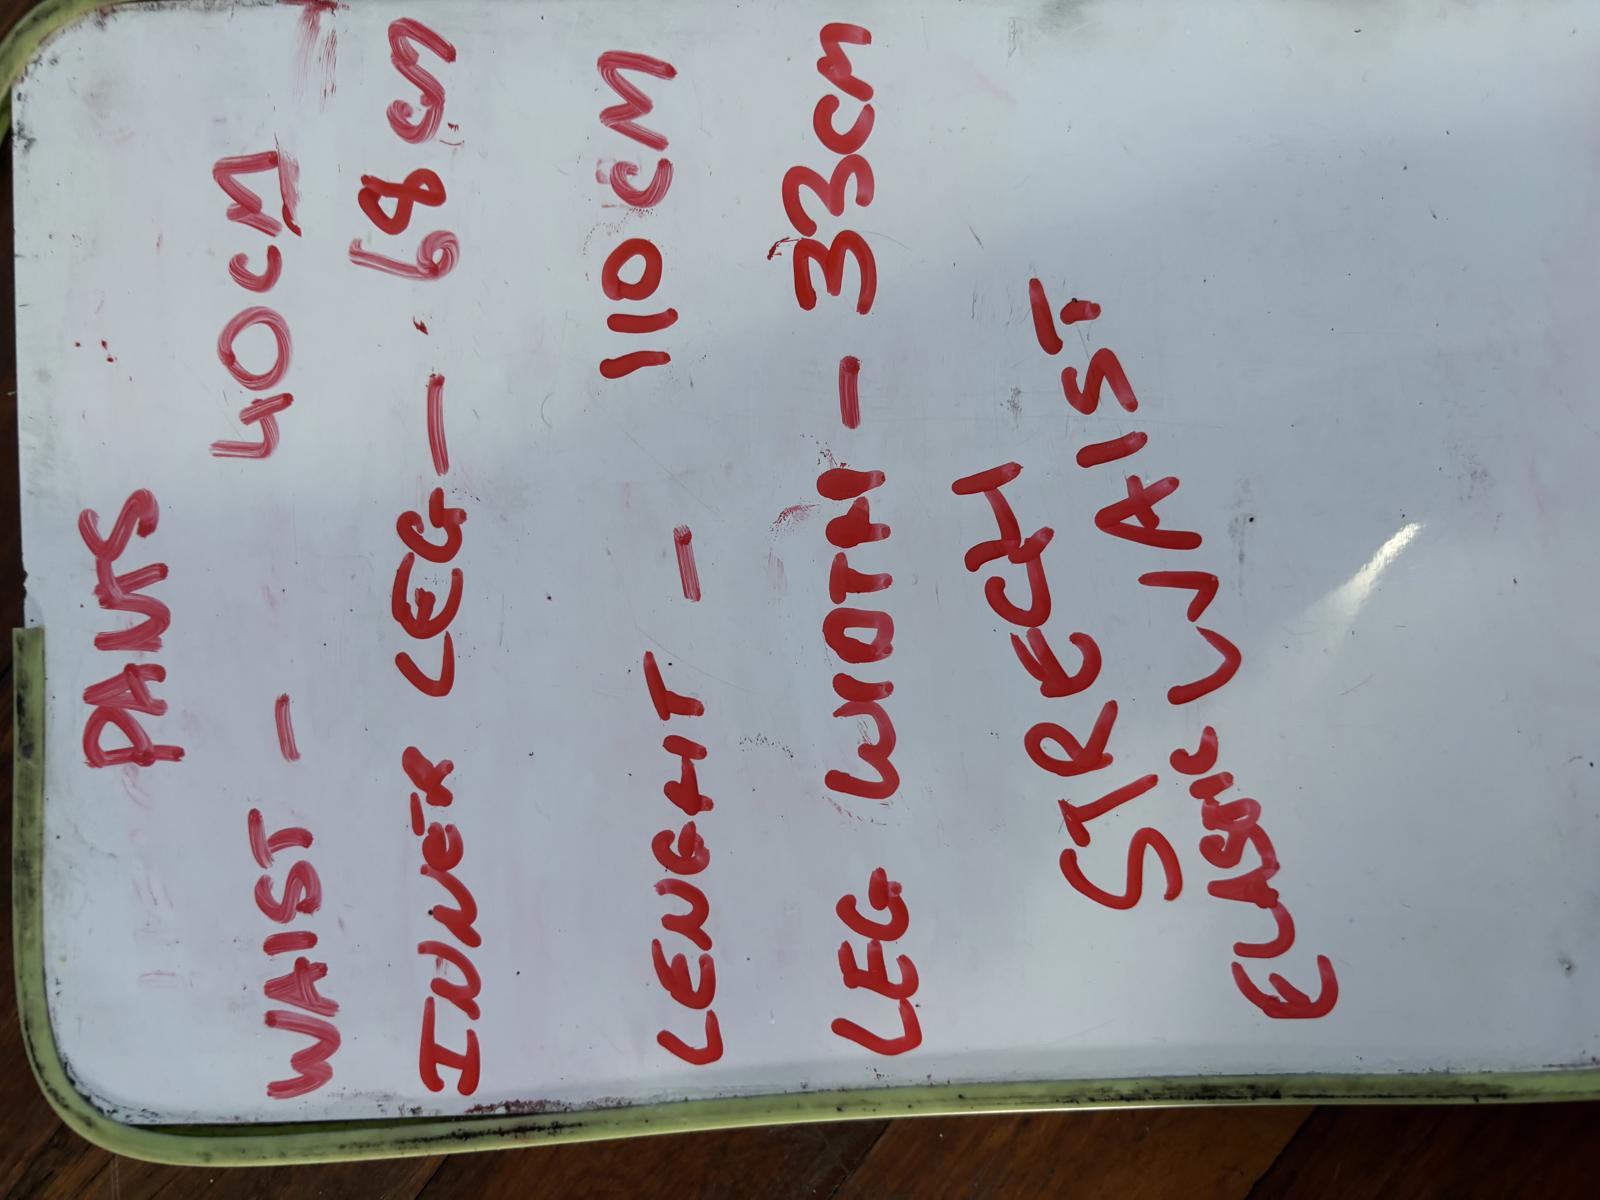 PANTS
WAIST - 40CM
INNER LEG - 68 CM
LENGHT - 110CM
LEG WIDTH - 33cm
STRECH
ELASTIC WAIST